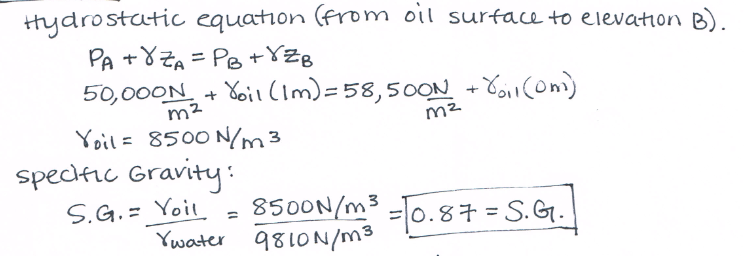 Hydrostatic equation (from oil surface to elevation B).
P_A + γz_A = P_B + γz_B
50,000 N/m² + γoil (1m) = 58,500 N/m² + γoil (0m)
γoil = 8500 N/m³
specific Gravity:
S.G. = γoil/γwater = 8500N/m³/9810N/m³ = 0.87 = S.G.